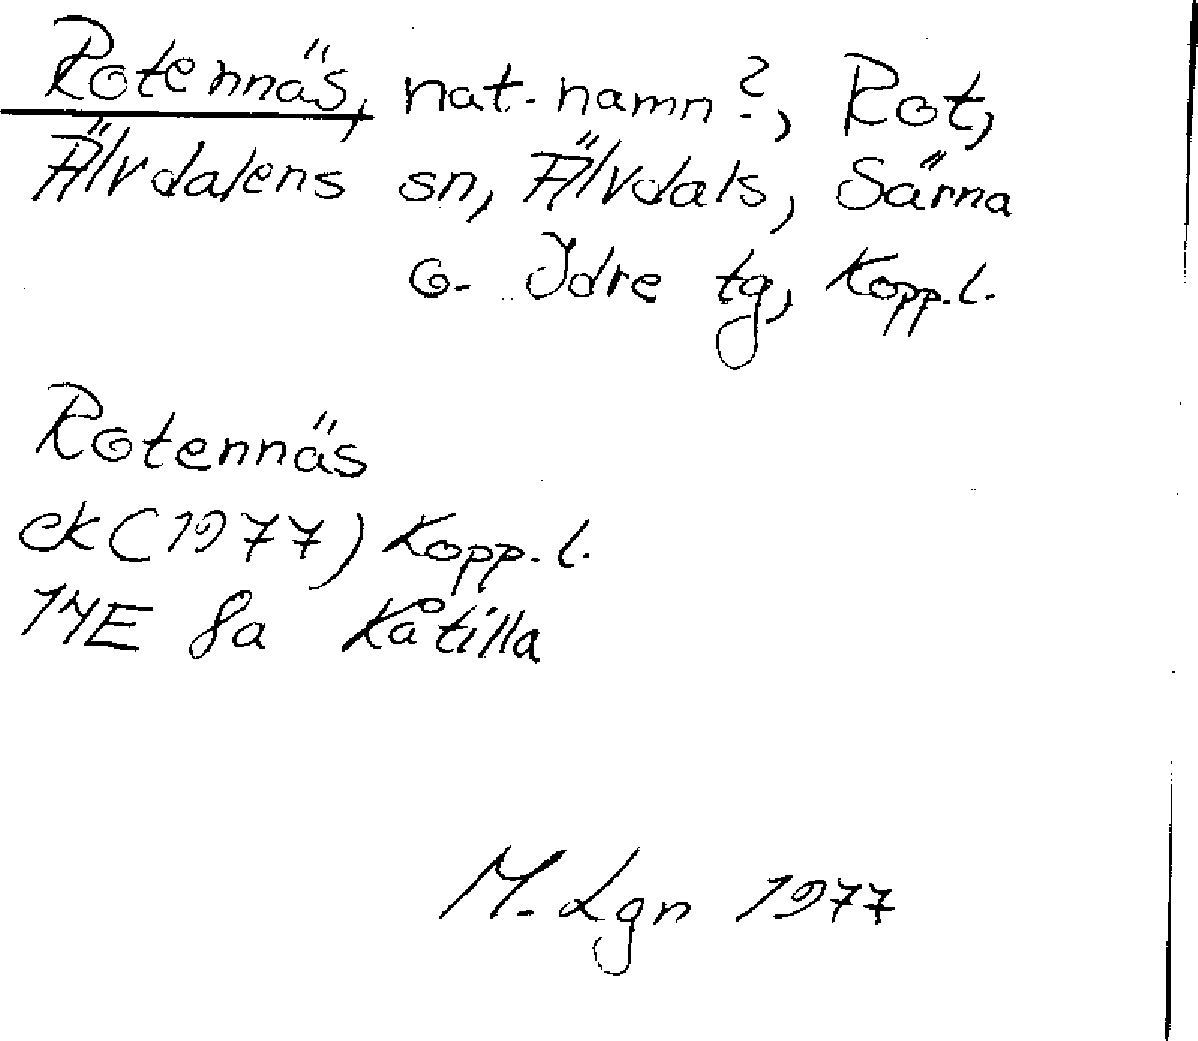 Rotennäs, nat.namn?, Rot,
Älvdalens sn, Älvdals, Särna
o. Idre tg, Kopp.l.
Rotennäs
ek (1977) Kopp.l.
14E 8a Kåtilla
M. Lgn 1977